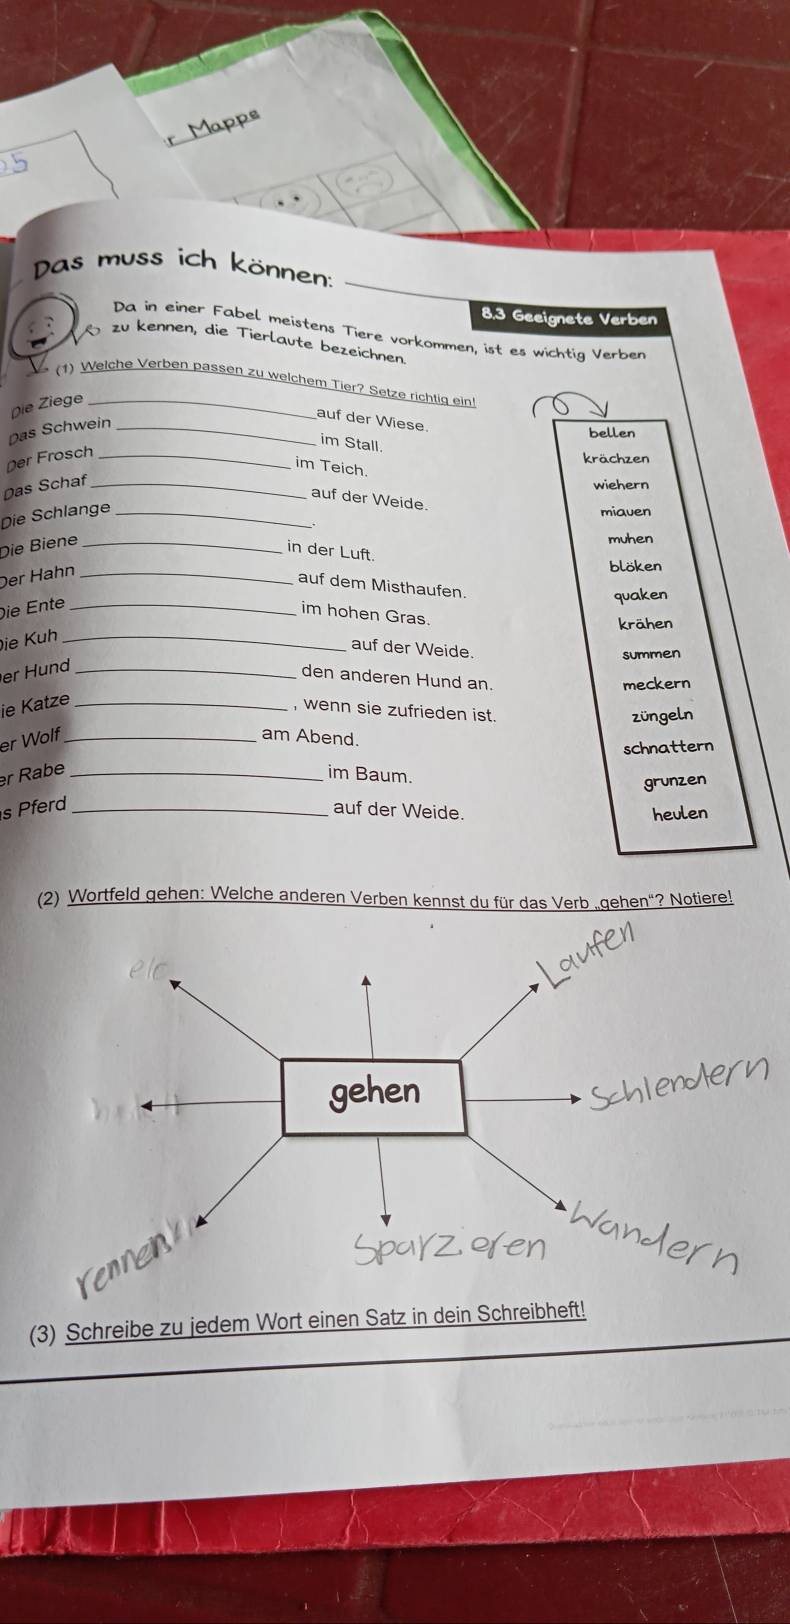 r Mappe
25
Das muss ich können:
8.3 Geeignete Verben
Da in einer Fabel meistens Tiere vorkommen, ist es wichtig Verben
zu kennen, die Tierlaute bezeichnen.
(1) Welche Verben passen zu welchem Tier? Setze richtig ein!
Die Ziege auf der Wiese.
Das Schwein im Stall.
Der Frosch im Teich.
Das Schaf auf der Weide.
Die Schlange .
Die Biene in der Luft.
Der Hahn auf dem Misthaufen.
Die Ente im hohen Gras.
Die Kuh auf der Weide.
er Hund den anderen Hund an.
ie Katze , wenn sie zufrieden ist.
er Wolf am Abend.
er Rabe im Baum.
s Pferd auf der Weide.
bellen
krächzen
wiehern
miauen
muhen
blöken
quaken
krähen
summen
meckern
züngeln
schnattern
grunzen
heulen
(2) Wortfeld gehen: Welche anderen Verben kennst du für das Verb „gehen“? Notiere!
Laufen
gehen
Schlendern
rennen
Sparzieren
Wandern
(3) Schreibe zu jedem Wort einen Satz in dein Schreibheft!